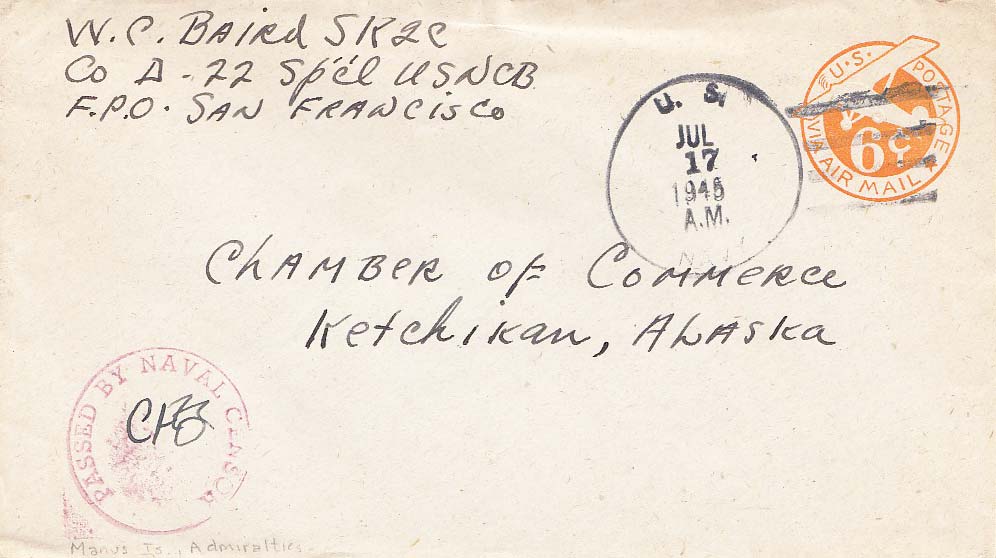 W. C. Baird SK2C
Co A - 22 Sp'cl USNCB
F.P.O. SAN FRANCISCO
U. S.
JUL
17
1945
A.M.
U.S. POSTAGE
6¢
VIA AIR MAIL
CHAMBER OF COMMERCE
Ketchikan, ALASKA
PASSED BY NAVAL CENSOR
Manus Is., Admiralties